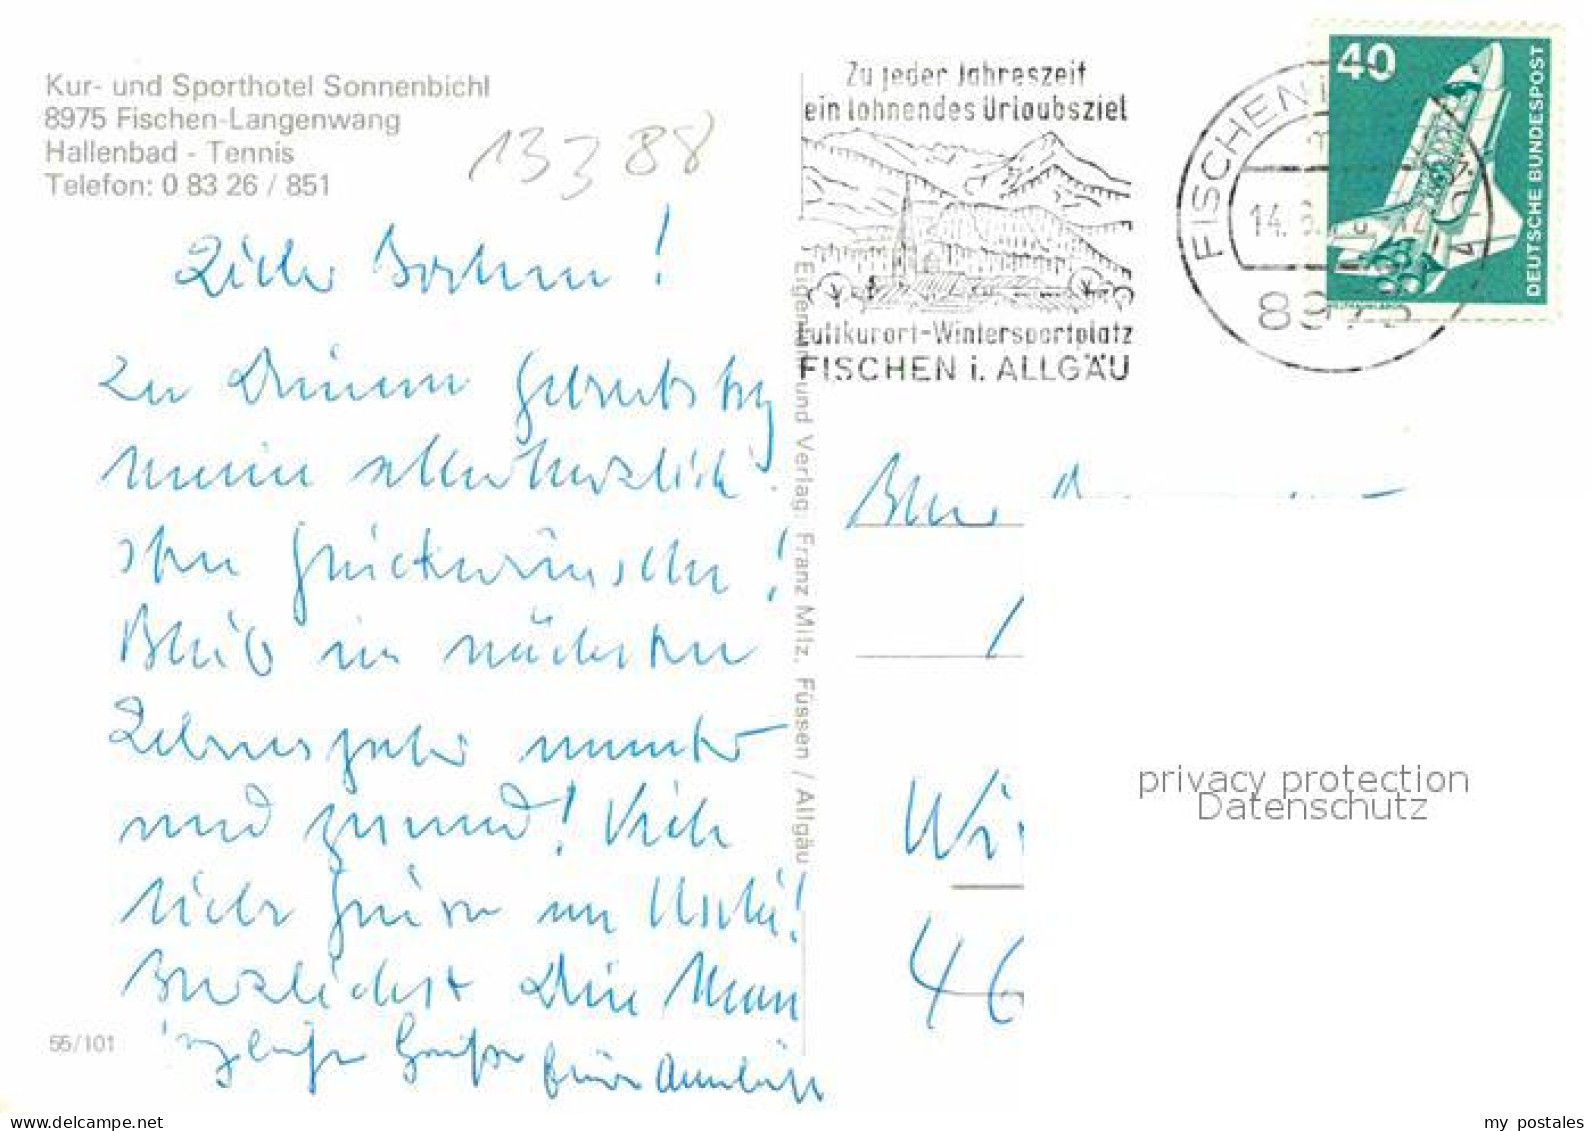 Kur- und Sporthotel Sonnenbichl
8975 Fischen-Langenwang
Hallenbad - Tennis
Telefon: 0 83 26 / 851
13388
Zu jeder Jahreszeit
ein lohnendes Urlaubsziel
Luftkurort-Wintersportplatz
FISCHEN i. ALLGÄU
FISCHEN i.
14.
8975
40
DEUTSCHE BUNDESPOST
Eigentum und Verlag: Franz Milz, Füssen / Allgäu
Lieber
Zu Deinem Geburtstag
meine allerherzlich-
sten Glückwünsche!
Bleib im nächsten
Lebensjahr munter
und gesund! Viele
liebe Grüße an Uschi!
Herzlichst Deine
Grüße
Wi
46
55/101
privacy protection
Datenschutz
my postales